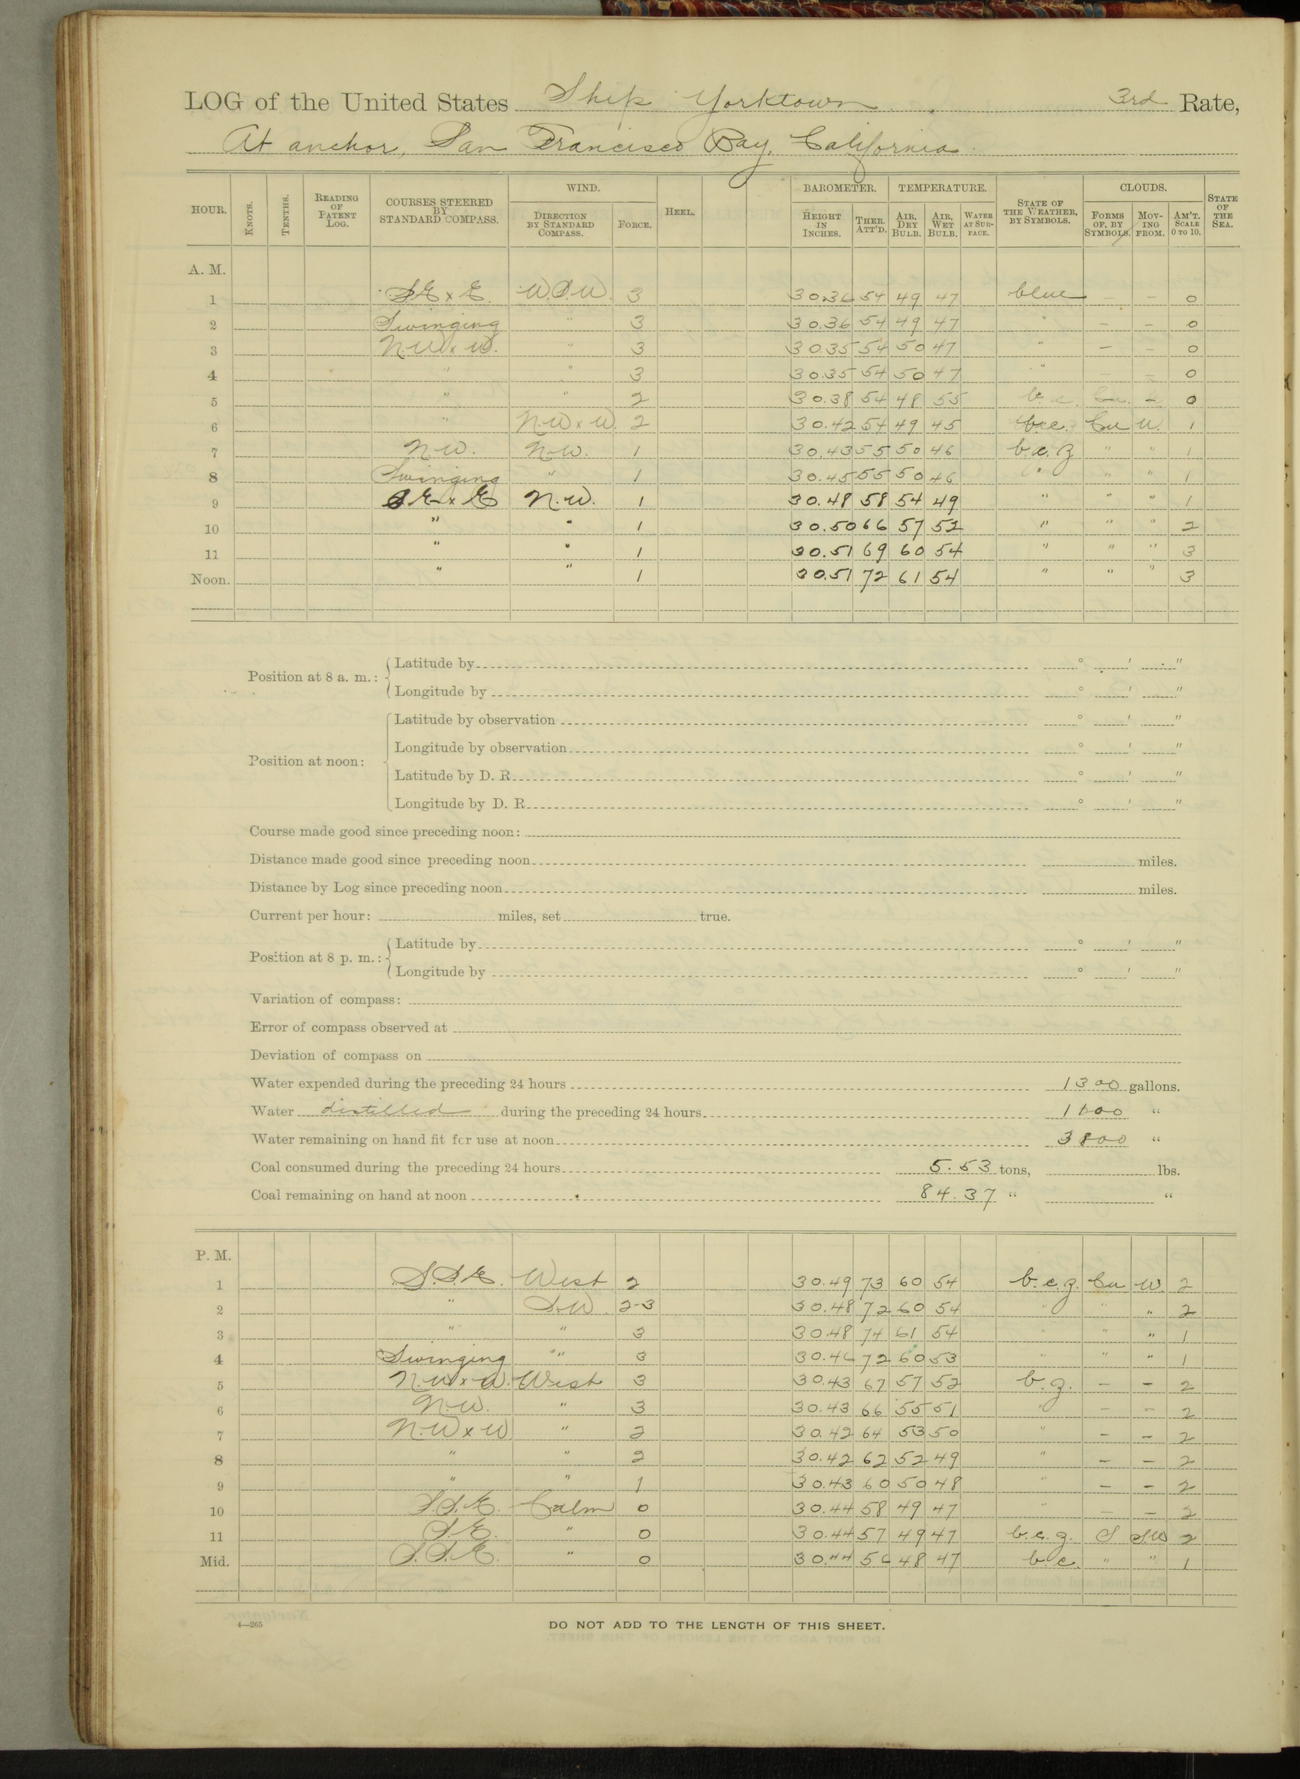 LOG of the United States Ship Yorktown, 3rd Rate,
At anchor, San Francisco Bay, California.
HOUR. KNOTS. TENTHS. READING OF PATENT LOG. COURSES STEERED BY STANDARD COMPASS. WIND. DIRECTION BY STANDARD COMPASS. FORCE. HEEL. BAROMETER. HEIGHT IN INCHES. THER. ATT'D. TEMPERATURE. AIR, DRY BULB. AIR, WET BULB. WATER AT SURFACE. STATE OF THE WEATHER, BY SYMBOLS. CLOUDS. FORMS OF, BY SYMBOLS. MOVING FROM. AM'T. SCALE 0 TO 10. STATE OF THE SEA.
A. M.
1 SE x E. W.S.W. 3 30.36 54 49 47 blue - - 0
2 Swinging " 3 30.36 54 49 47 " - - 0
3 N.W x W. " 3 30.35 54 50 47 " - - 0
4 " " 3 30.35 54 50 47 " - - 0
5 " " 2 30.38 54 48 55 b.c. Cu. - 0
6 " N.W x W. 2 30.42 54 49 45 b.c. Cu W. 1
7 N.W. N.W. 1 30.43 55 50 46 b.c.z " " 1
8 Swinging " 1 30.45 55 50 46 " " " 1
9 SE x E N.W. 1 30.48 58 54 49 " " " 1
10 " " 1 30.50 66 57 52 " " " 2
11 " " 1 30.51 69 60 54 " " " 3
Noon. " " 1 30.51 72 61 54 " " " 3
Position at 8 a. m.: Latitude by ° ' "
Longitude by ° ' "
Position at noon: Latitude by observation ° ' "
Longitude by observation ° ' "
Latitude by D. R. ° ' "
Longitude by D. R. ° ' "
Course made good since preceding noon:
Distance made good since preceding noon miles.
Distance by Log since preceding noon miles.
Current per hour: miles, set true.
Position at 8 p. m.: Latitude by ° ' "
Longitude by ° ' "
Variation of compass:
Error of compass observed at
Deviation of compass on
Water expended during the preceding 24 hours 1300 gallons.
Water distilled during the preceding 24 hours "
Water remaining on hand fit for use at noon 3800 "
Coal consumed during the preceding 24 hours 5.53 tons, lbs.
Coal remaining on hand at noon 84.37 " "
P. M.
1 S.S.E. West 2 30.49 73 60 54 b.c.z Cu W. 2
2 " S.W. 2-3 30.48 72 60 54 " " " 2
3 " " 3 30.48 74 61 54 " " " 1
4 Swinging " " 3 30.46 72 60 53 " " " 1
5 N.W x W. West 3 30.43 67 57 52 b.z. - - 2
6 N.W. " 3 30.43 66 55 51 " - - 2
7 N.W x W " 2 30.42 64 53 50 " - - 2
8 " " 2 30.42 62 52 49 " - - 2
9 " " 1 30.43 60 50 48 " - - 2
10 S.S.E. Calm 0 30.44 58 49 47 " - - 2
11 S.E. " 0 30.44 57 49 47 b.c.z. S SW 2
Mid. S.S.E. " 0 30.44 56 48 47 b.c. " " 1
4—265
DO NOT ADD TO THE LENGTH OF THIS SHEET.